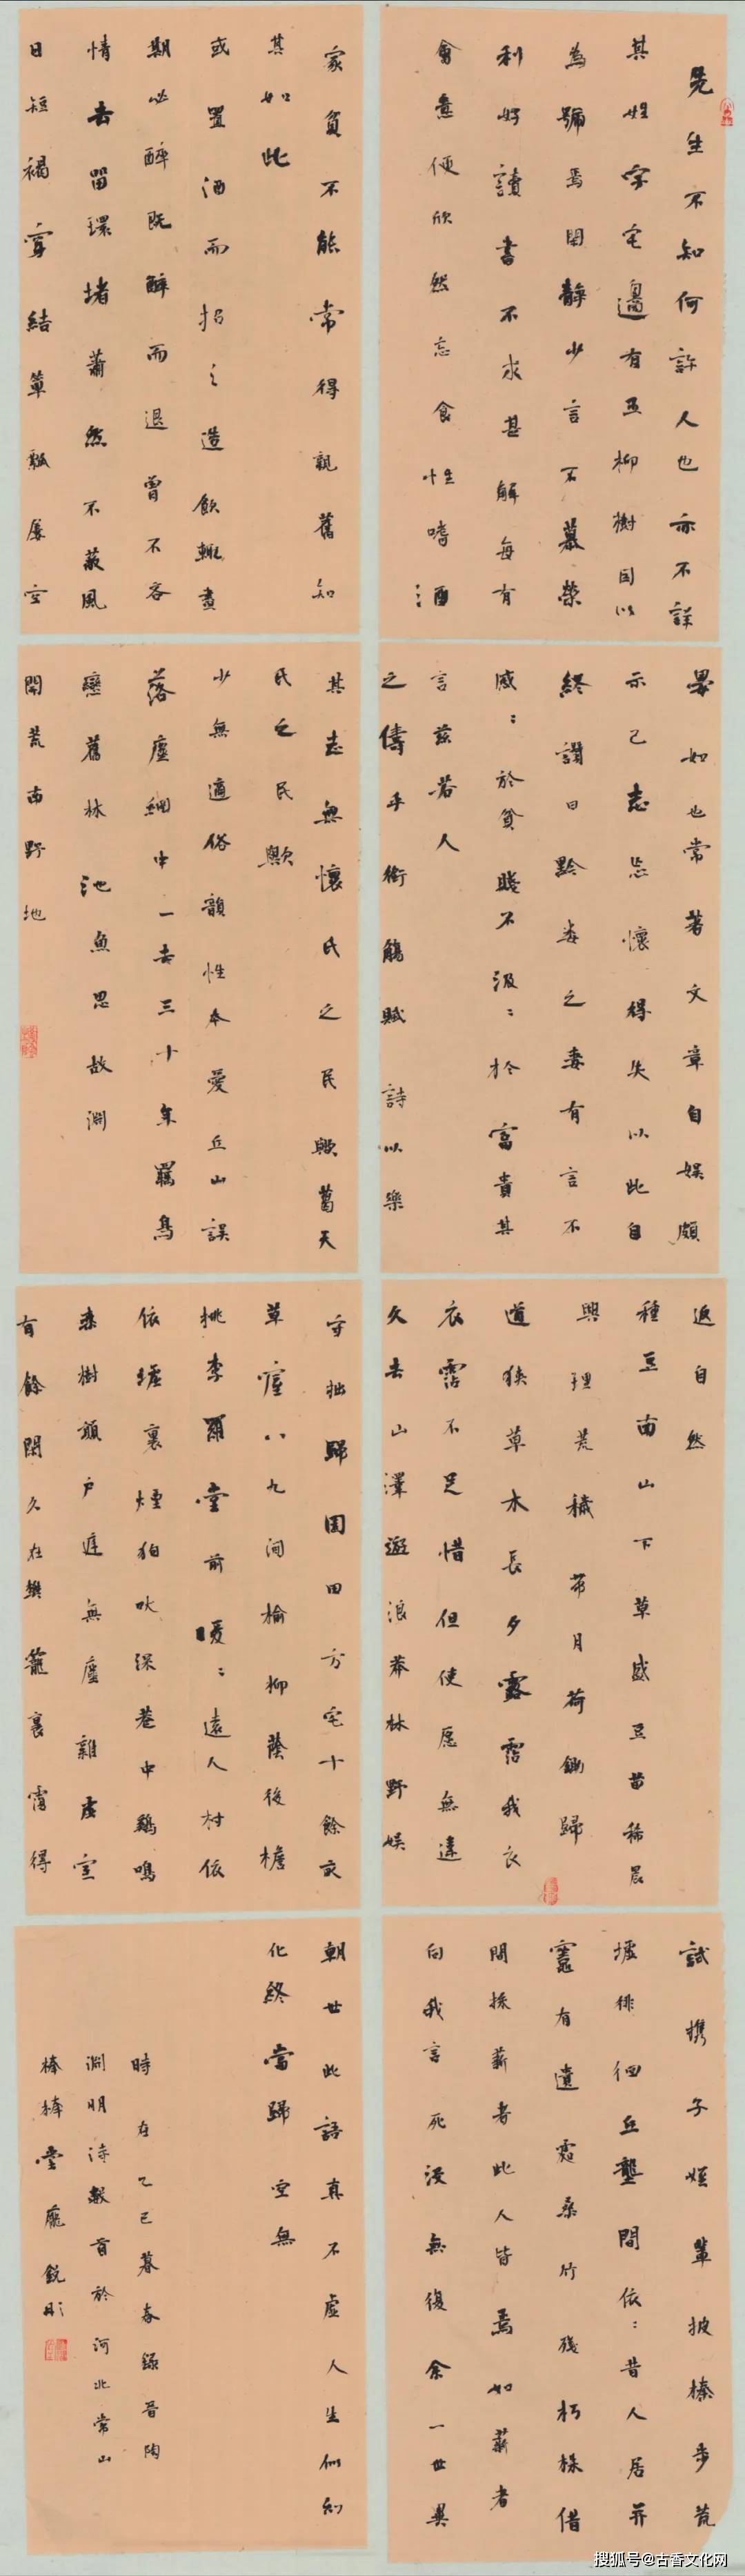 先生不知何許人也亦不詳
其姓字宅邊有五柳樹因以
為號焉閑靜少言不慕榮
利好讀書不求甚解每有
會意便欣然忘食性嗜酒
家貧不能常得親舊知
其如此
或置酒而招之造飲輒盡
期必醉既醉而退曾不吝
情去留環堵蕭然不蔽風
日短褐穿結簞瓢屢空
晏如也常著文章自娛頗
示己志忘懷得失以此自
終讚曰黔婁之妻有言不
慼：於貧賤不汲：於富貴其
言茲若人
之儔乎銜觴賦詩以樂
其志無懷氏之民歟葛天
氏之民歟
少無適俗韻性本愛丘山誤
落塵網中一去三十年羈鳥
戀舊林池魚思故淵
開荒南野地
守拙歸園田方宅十餘畝
草屋八九间榆柳蔭後檐
桃李羅堂前曖：遠人村依
依墟裏煙狗吠深巷中鷄鳴
桑樹顛戶庭無塵雜虛室
有餘閑久在樊籠裏復得
返自然
種豆南山下草盛豆苗稀晨
興理荒穢帶月荷鋤歸
道狹草木長夕露霑我衣
衣霑不足惜但使愿無違
久去山澤遊浪莽林野娛
試攜子姪輩披榛步荒
墟徘徊丘壟間依：昔人居井
竈有遺處桑竹殘朽株借
問採薪者此人皆焉如薪者
向我言死沒無復余一世異
朝世此語真不虛人生似幻
化終當歸空無
時在乙巳暮春錄晉陶
淵明诗數首於河北常山
棒棒堂龐銳彤
搜狐号@古香文化网